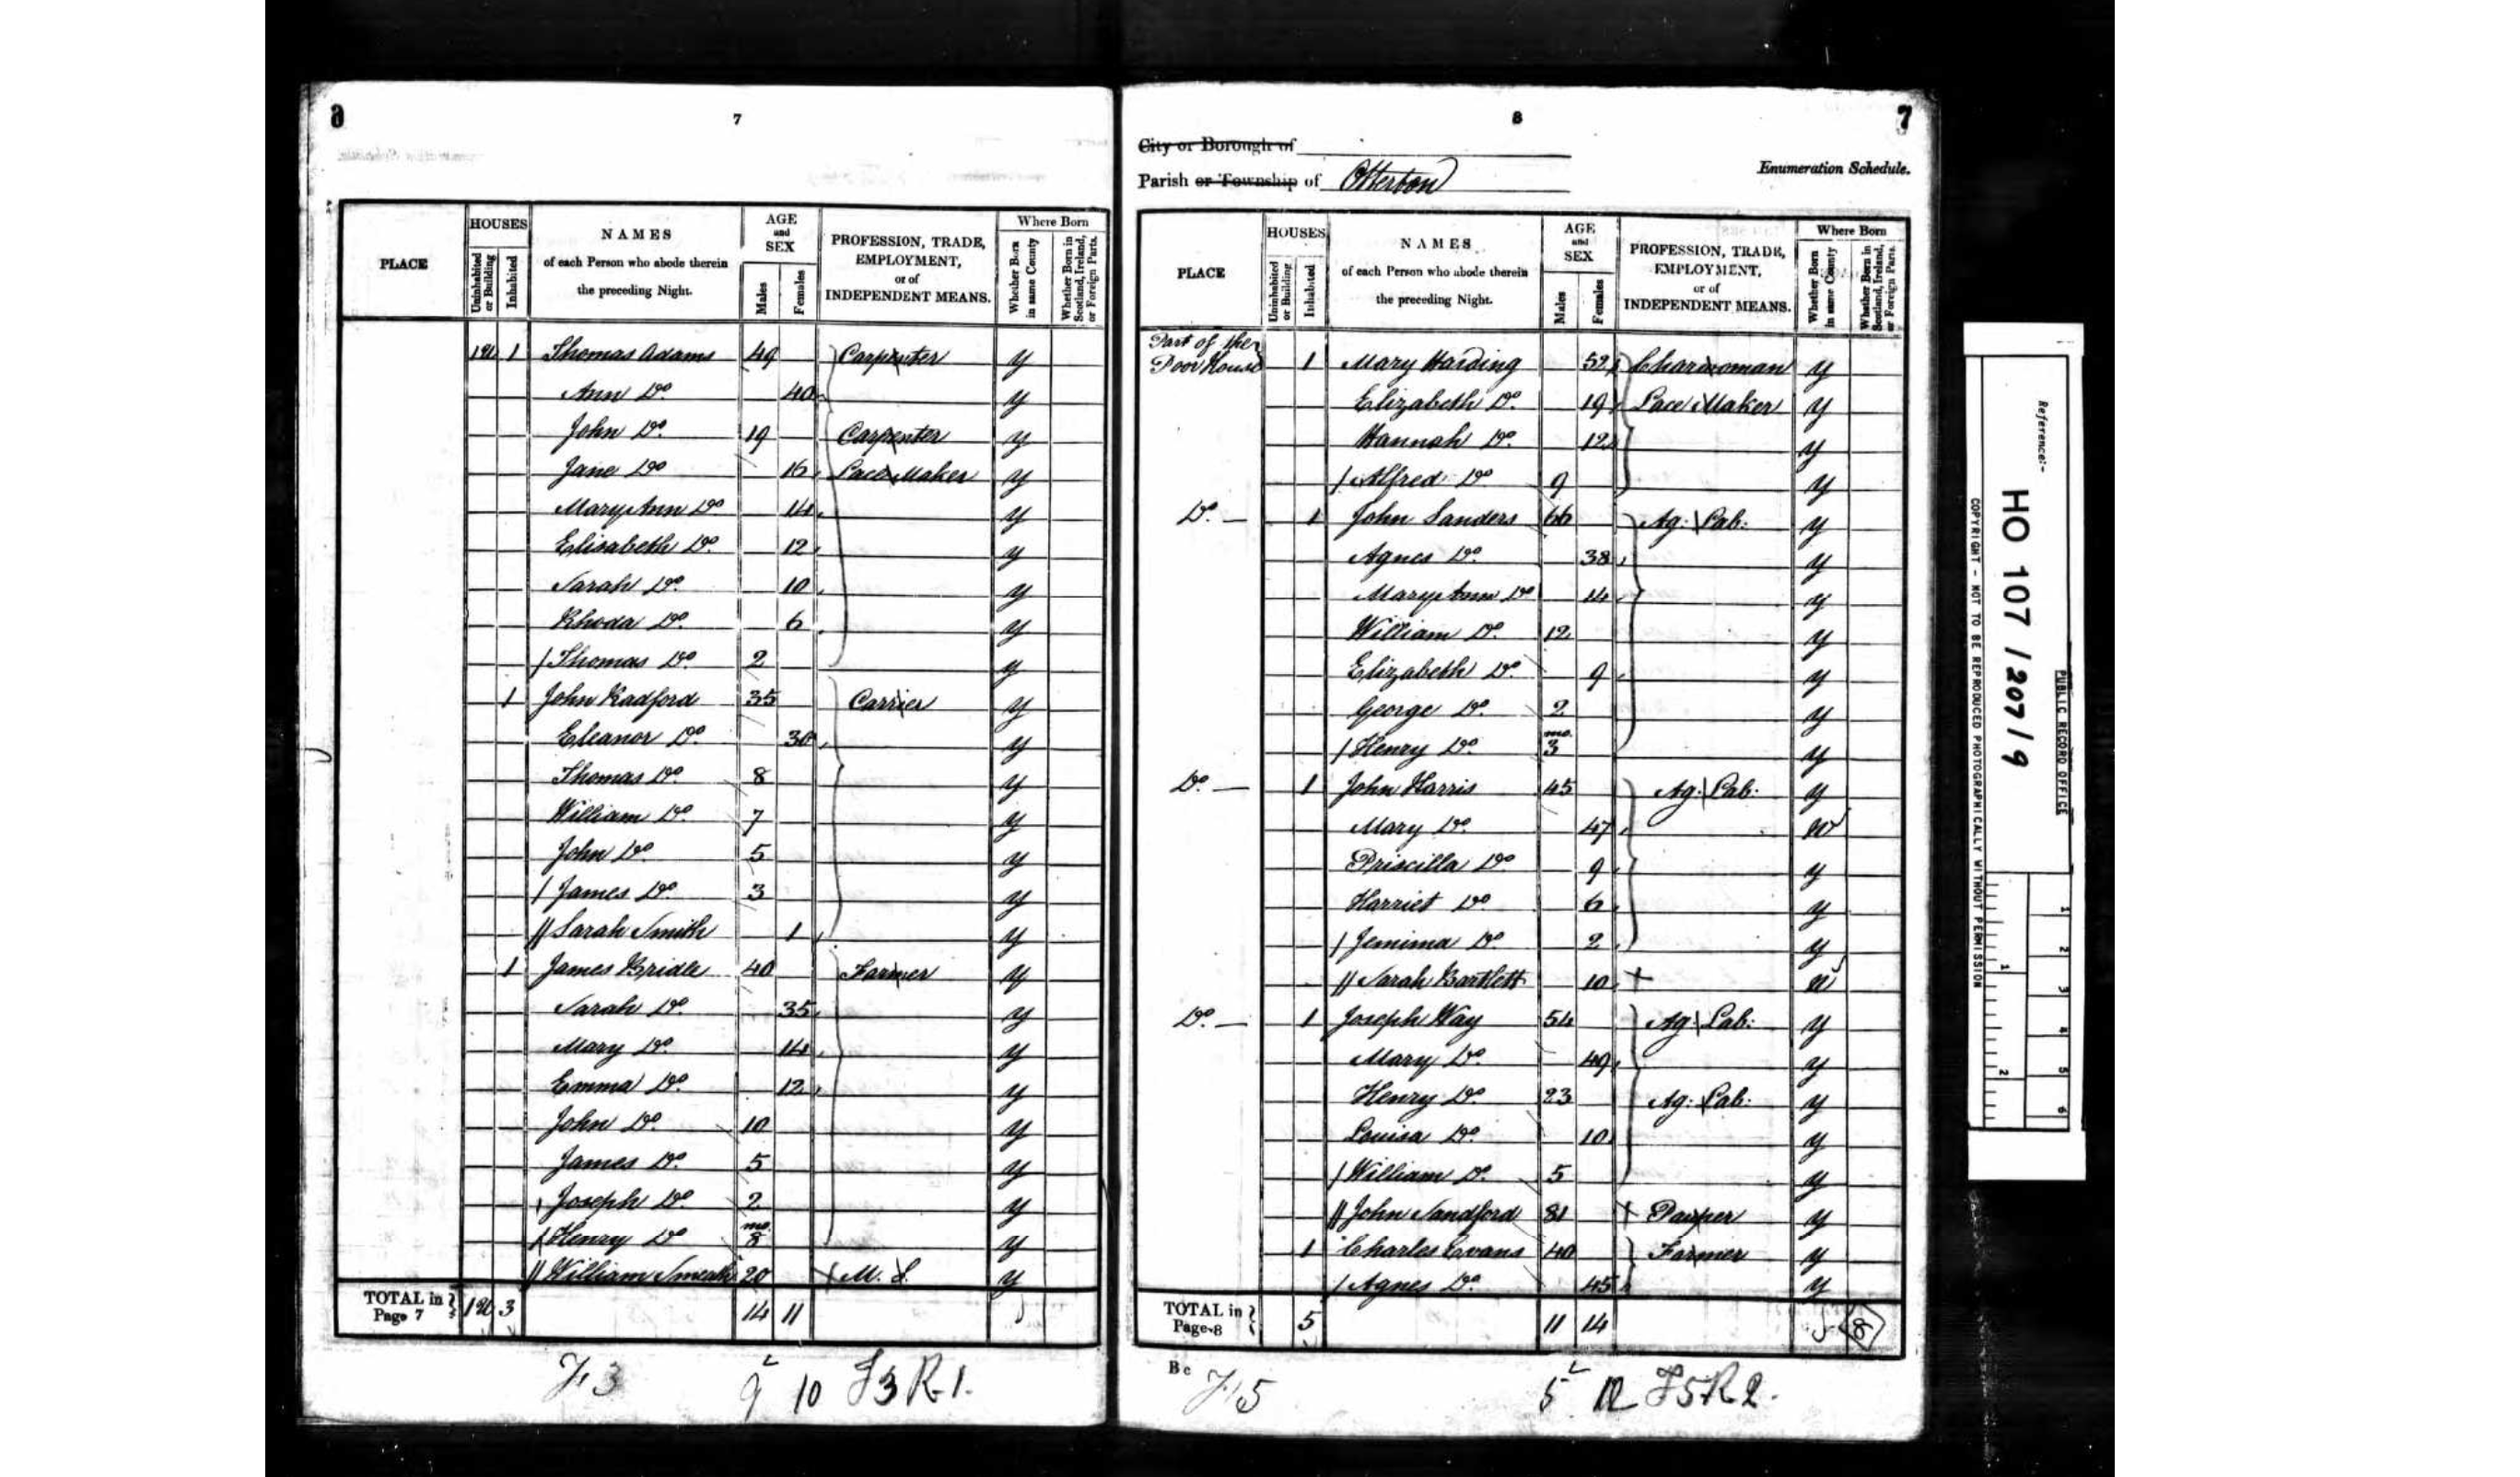 6
7
PLACE HOUSES Uninhabited or Building Inhabited NAMES of each Person who abode therein the preceding Night. AGE and SEX Males Females PROFESSION, TRADE, EMPLOYMENT, or of INDEPENDENT MEANS. Where Born Whether Born in same County Whether Born in Scotland, Ireland, or Foreign Parts.
1 Thomas Adams 49 Carpenter y
Ann Do. 40 y
John Do. 19 Carpenter y
Jane Do 16 Lace Maker y
Mary Ann Do 14 y
Elisabeth Do. 12 y
Sarah Do. 10 y
Rhoda Do. 6 y
/ Thomas Do. 2 y
1 John Radford 35 Carrier y
Eleanor Do. 30 y
Thomas Do. 8 y
William Do. 7 y
John Do. 5 y
/ James Do. 3 y
// Sarah Smith 1 y
1 James Bridle 40 Farmer y
Sarah Do. 35 y
Mary Do. 14 y
Emma Do. 12 y
John Do. 10 y
James Do. 5 y
Joseph Do. 2 y
/ Henry Do mo. 8 y
// William Smeath 20 M. S. y
TOTAL in Page 7 3 14 11
F 3 9 10 F3 R.1.
8
7
City or Borough of
Parish or Township of Otterton
Enumeration Schedule.
PLACE HOUSES Uninhabited or Building Inhabited NAMES of each Person who abode therein the preceding Night. AGE and SEX Males Females PROFESSION, TRADE, EMPLOYMENT, or of INDEPENDENT MEANS. Where Born Whether Born in same County Whether Born in Scotland, Ireland, or Foreign Parts.
Part of the
Poor House 1 Mary Harding 52 Charwoman y
Elizabeth Do. 19 Lace Maker y
Hannah Do. 12 y
/ Alfred Do 9 y
Do. — 1 John Sanders 66 Ag: Lab: y
Agnes Do. 38 y
Mary Ann Do 14 y
William Do. 12 y
Elizabeth Do. 9 y
George Do. 2 y
/ Henry Do. mo. 3 y
Do. — 1 John Harris 45 Ag: Lab: y
Mary Do. 47 N
Priscilla Do. 9 y
Harriet Do 6 y
/ Jemima Do. 2 y
// Sarah Bartlett 10 + N
Do. — 1 Joseph Way 54 Ag: Lab: y
Mary Do. 49 y
Henry Do. 23 Ag: Lab: y
Louisa Do. 10 y
/ William Do. 5 y
// John Sandford 81 + Pauper y
1 Charles Evans 40 Farmer y
/ Agnes Do. 45 y
TOTAL in Page 8 5 11 14
Bc F 5 5 12 F5 R 2.
Reference:-
HO 107 / 207 / 9
PUBLIC RECORD OFFICE
COPYRIGHT - NOT TO BE REPRODUCED PHOTOGRAPHICALLY WITHOUT PERMISSION
1 2
1 2 3 4 5 6